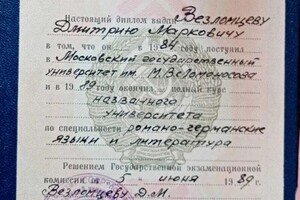 Настоящий диплом выдан Везломцеву
Дмитрию Марковичу
в том, что он в 1984 поступил
в Московский государственный
университет им. М.В. Ломоносова
и в 1989 окончил полный курс
названного
университета
по специальности романо-германские
языки и литература
Решением Государственной экзаменационной
комиссии от 5 июня 1989 г.
Везломцеву Д.М.